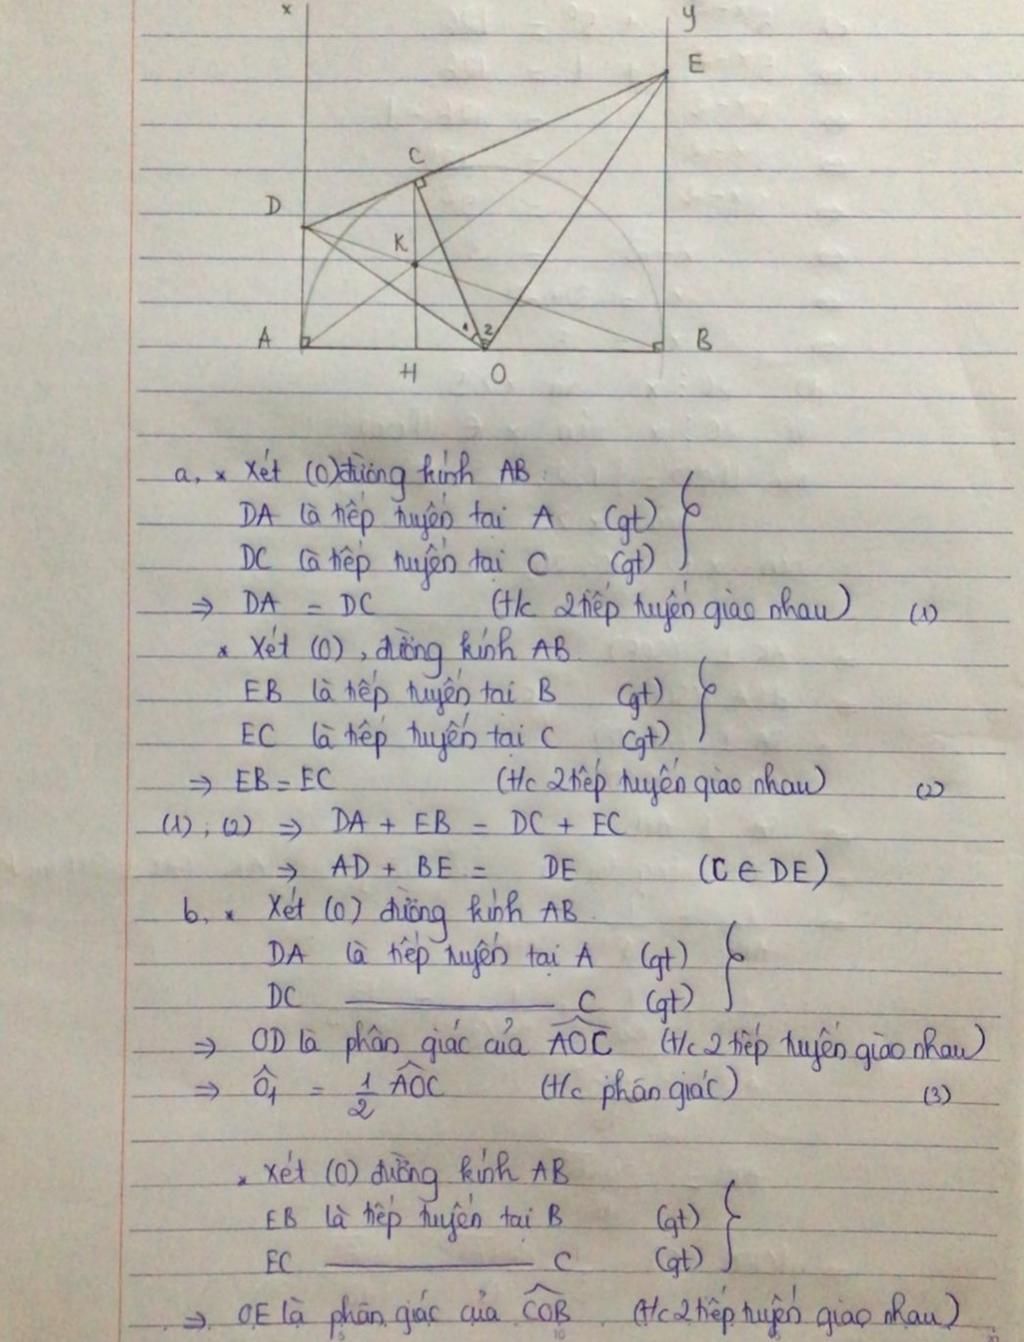 x
y
E
C
D
K
1 2
A
B
H
O
a, * Xét (O) đường kính AB
DA là tiếp tuyến tại A (gt)
DC là tiếp tuyến tại C (gt)
⇒ DA = DC (t/c 2 tiếp tuyến giao nhau) (1)
* Xét (O), đường kính AB
EB là tiếp tuyến tại B (gt)
EC là tiếp tuyến tại C (gt)
⇒ EB = EC (t/c 2 tiếp tuyến giao nhau) (2)
(1), (2) ⇒ DA + EB = DC + EC
⇒ AD + BE = DE (C ∈ DE)
b, * Xét (O) đường kính AB
DA là tiếp tuyến tại A (gt)
DC ———— C (gt)
⇒ OD là phân giác của \widehat{AOC} (t/c 2 tiếp tuyến giao nhau)
⇒ Ô₁ = 1/2 \widehat{AOC} (t/c phân giác) (3)
* Xét (O) đường kính AB
EB là tiếp tuyến tại B (gt)
EC ———— C (gt)
⇒ OE là phân giác của \widehat{COB} (t/c 2 tiếp tuyến giao nhau)